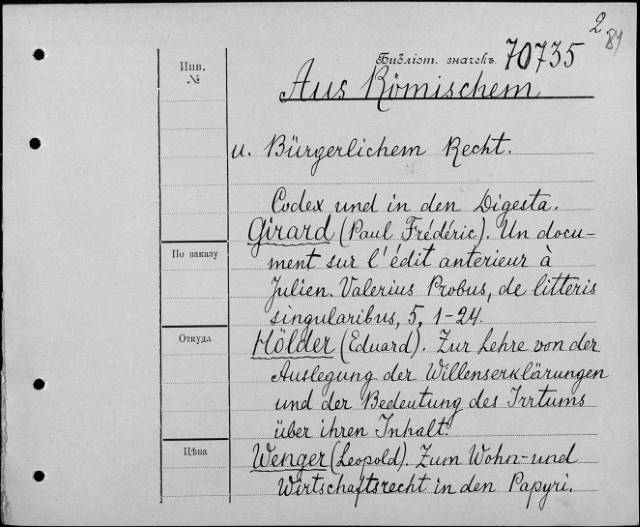 2
84
Библіот. значекъ 70735
Инв.
№
Aus Römischem
u. Bürgerlichem Recht.
Codex und in den Digesta.
Girard (Paul Frédéric). Un docu-
По заказу
ment sur l'édit anterieur à
Julien. Valerius Probus, de litteris
singularibus, 5, 1-24.
Откуда
Hölder (Eduard). Zur Lehre von der
Auslegung der Willenserklärungen
und der Bedeutung des Irrtums
über ihren Inhalt.
Цѣна
Wenger (Leopold). Zum Wohn- und
Wirtschaftsrecht in den Papyri.